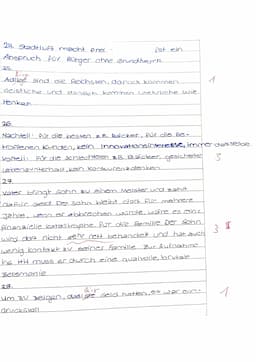 24. Stadtluft macht frei - ist ein
Anspruch für Bürger ohne Grundherrn
25.
Adlige sind die Reichsten, danach kommen
Geistliche und danach kommen weltliche wie
26.
Nachteil: Für die besten z.B. Bäcker, für die be-
troffenen Kunden, kein Innovationsinteresse, immer dasselbe
Vorteil: Für die schlechten z.B. Bäcker, gesicherter
Lebensunterhalt, kein Konkurrenzdenken
3
27.
Vater bringt Sohn zu einem Meister und zahlt
dafür Geld. Der Sohn bleibt dort für mehrere
Jahre, wenn er abbrechen würde, wäre es eine
finanzielle Katastrophe. Für die Familie. Der Sohn
wird dort nicht sehr nett behandelt und hat auch
3
wenig Kontakt zu seiner Familie. Zur Aufnahme
muss er durch eine qualvolle, brutale
Zeremonie
Um zu zeigen, Geld hatten, es war ein
1